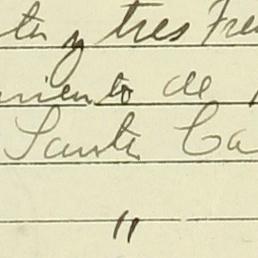 ta y tres Fre
miento de
Santa Ca
"